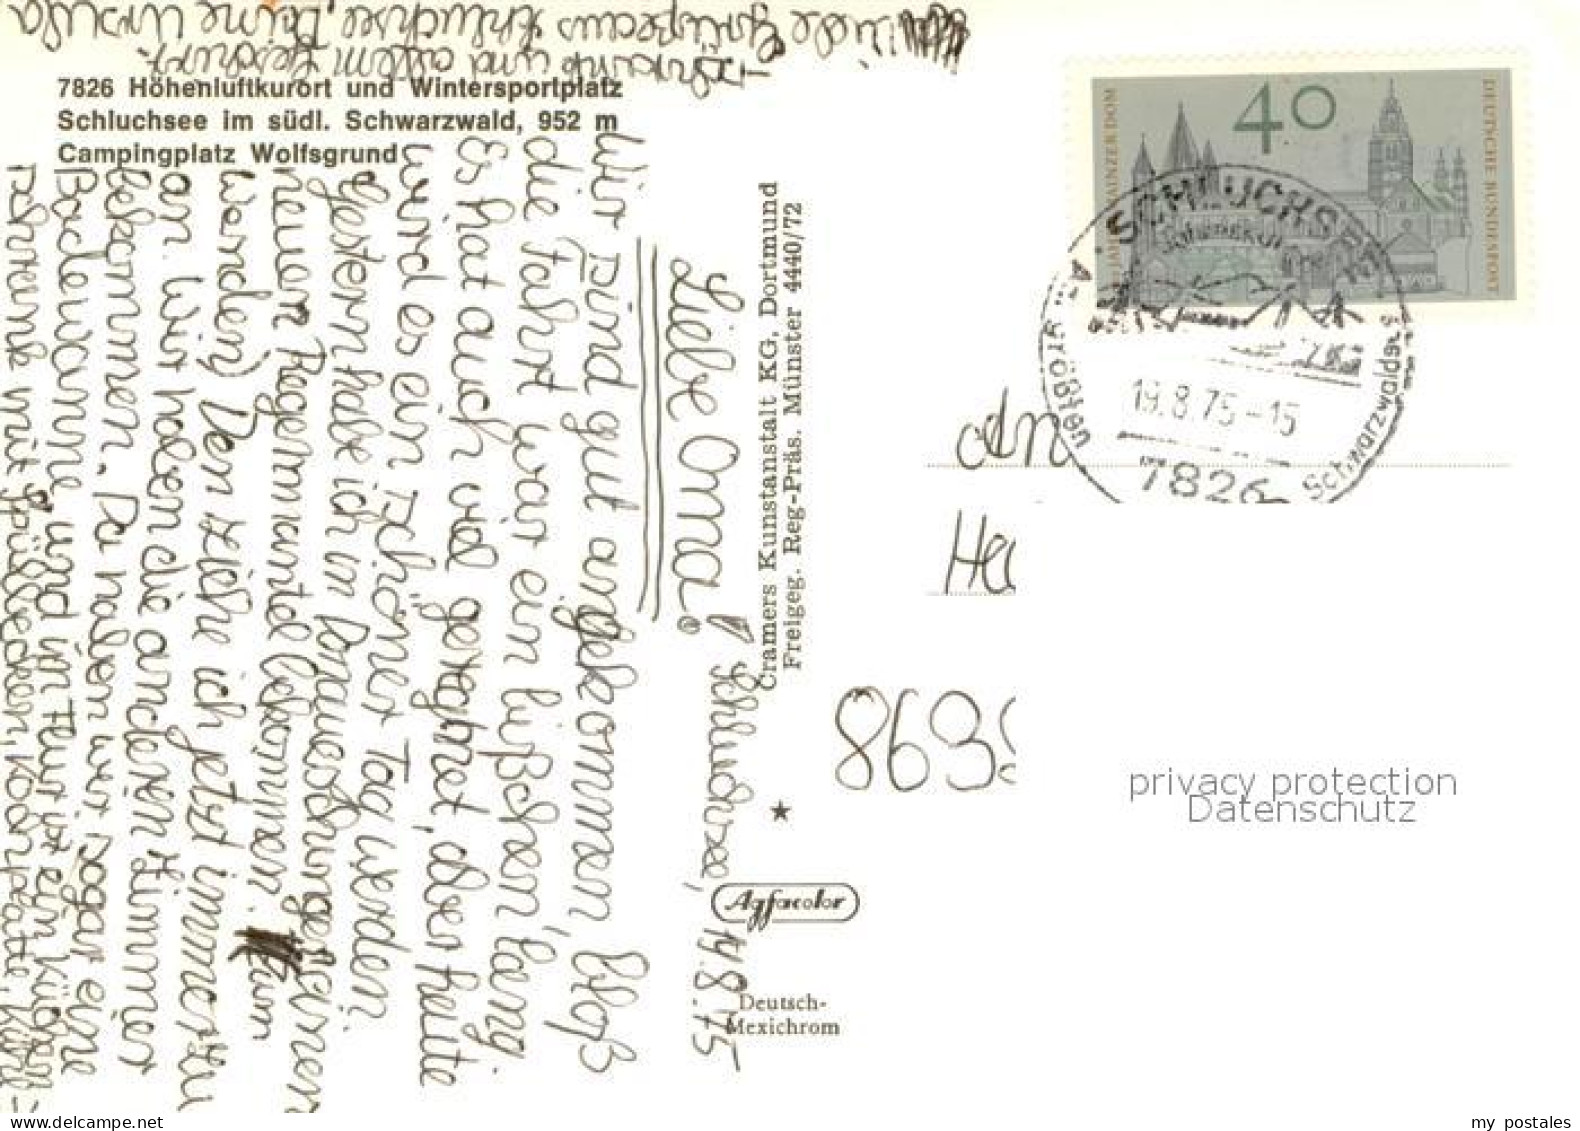 7826 Höhenluftkurort und Wintersportplatz
Schluchsee im südl. Schwarzwald, 952 m
Campingplatz Wolfsgrund
Schluchsee, 14.8.75
Liebe Oma!
Wir sind gut angekommen, bloß
die Fahrt war ein bißchen lang.
Es hat auch viel geregnet, aber heute
wird es ein schöner Tag werden.
Gestern habe ich in
neuen Regenmantel bekommen. zum
Wandern) Den ziehe ich jetzt immer zu
an. Wir haben die anderen Zimmer
bekommen. Da haben wir sogar eine
Badewanne und im Flur ist ein
Schrank mit Spülbecken, Kochplatte,
und allem Geschirr.
Viele Grüße aus Schluchsee, Deine Ursula
Cramers Kunstanstalt KG, Dortmund
Freigeg. Reg-Präs. Münster 4440/72
★
Agfacolor
Deutsch-
Mexichrom
40
DEUTSCHE BUNDESPOST
MAINZER DOM
SCHLUCHSEE
Am größten
Schwarzwaldsee
19.8.75-15
7826
An
privacy protection
Datenschutz
my postales